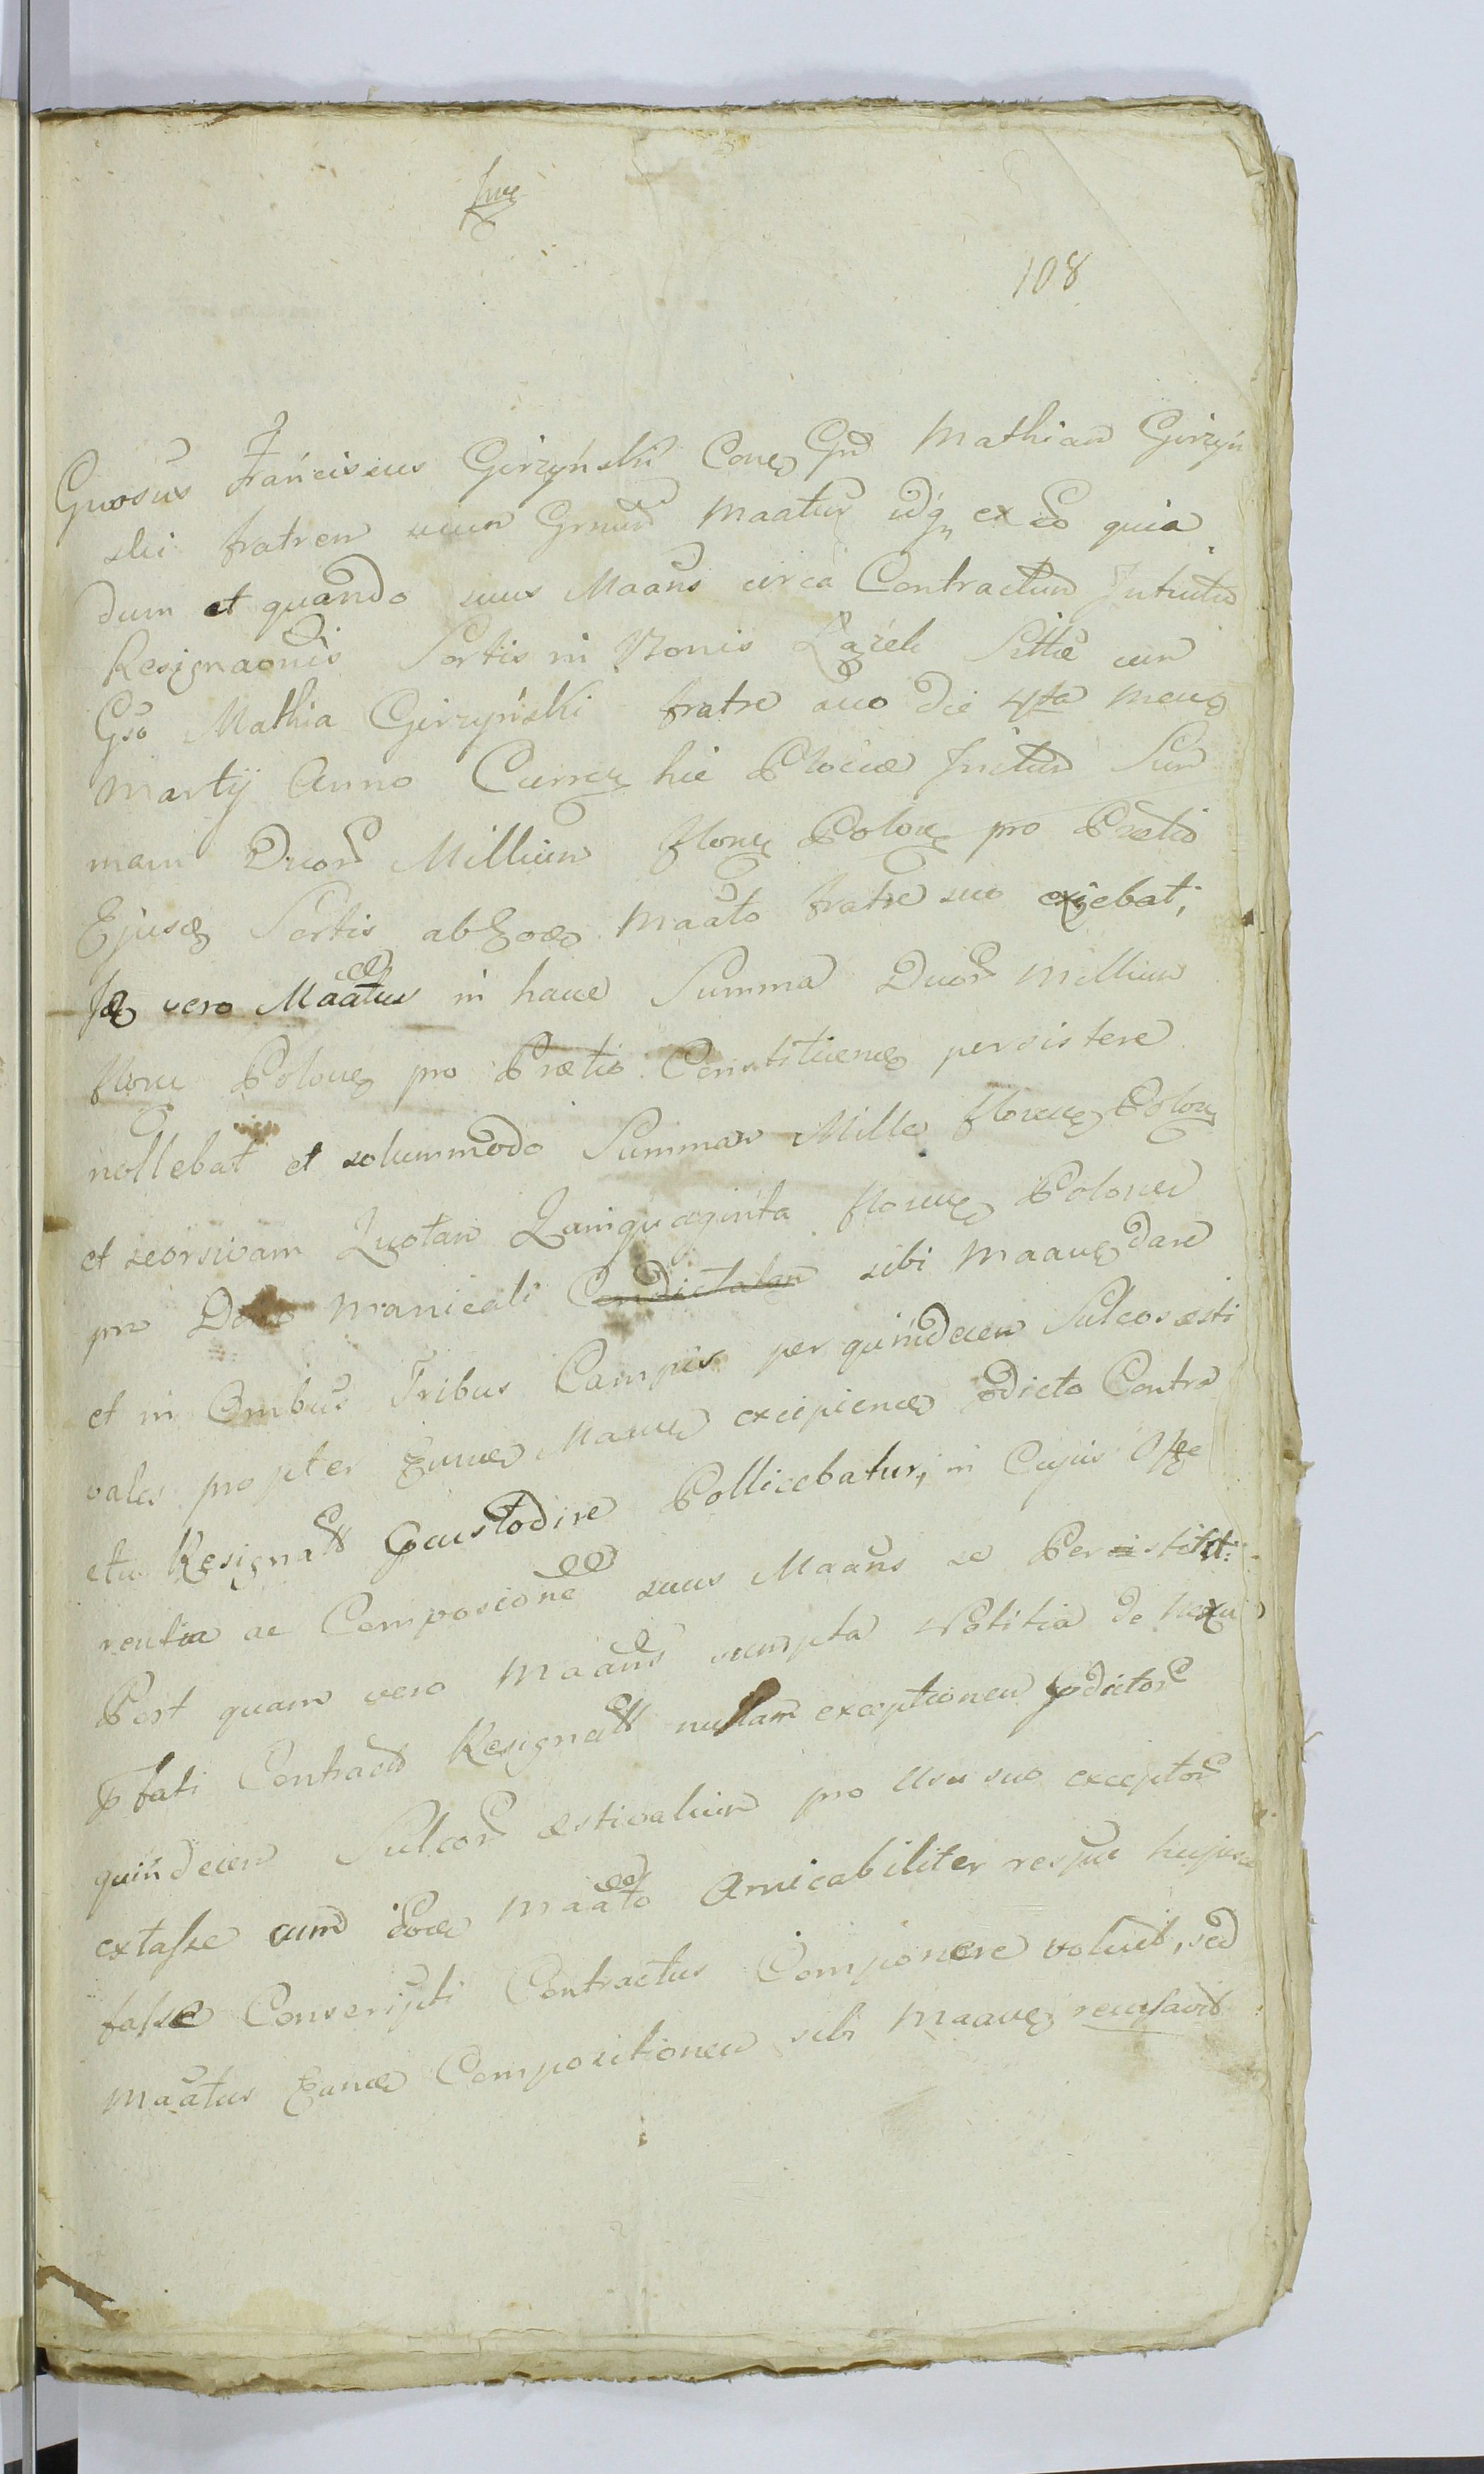 108
Gnosus Franciscus Girzyński Con Gnd Mathiam Girzyń
ski fratrem suum Grnum Maatur idq ex Eo quia
dum et quando suus Maans circa Contractum Intuitu
Resignaonis Sortis in Bonis Łążek Sittæ cum
Gso Mathia Girzyński fratre suo die 4ta mens
Martij Anno Curren hic Plociæ Initum Sum
mam Duor Millium floren Polon pro Prætio
Ejusd Sortis ab eod Maato fratre suo exiebat;
Id vero Maatus in hanc Summa Duor Millium
floren Polon pro Prætio Constituend persistere
nollebat et solummodo Summam Mille floren Polon
et seorsivam Quotam Quinquaginta floren Polon
pro Dono Manicali Condictatam sibi Maan dare
et in Ombus Tribus Campis per quindecem Sulcos æsti
vales propter Maan excipiend dicto Contra
ctu Resignat Custodire Pollicebatur, in Cujus
rentia ac Composicione suus Maans se Perstitit:
Post quam vero Maans sumpta Notitia de nexu
fati Contract Resignat nullam exceptionem dictor
quindecem Sulcor æstivalium pro Usu suo exceptor
extasse cum Maato Amicabiliter respu hujus
fasse Conscripti Contractus Componere voluit, sed
Maatus Compositionem sibi Maan recusavit